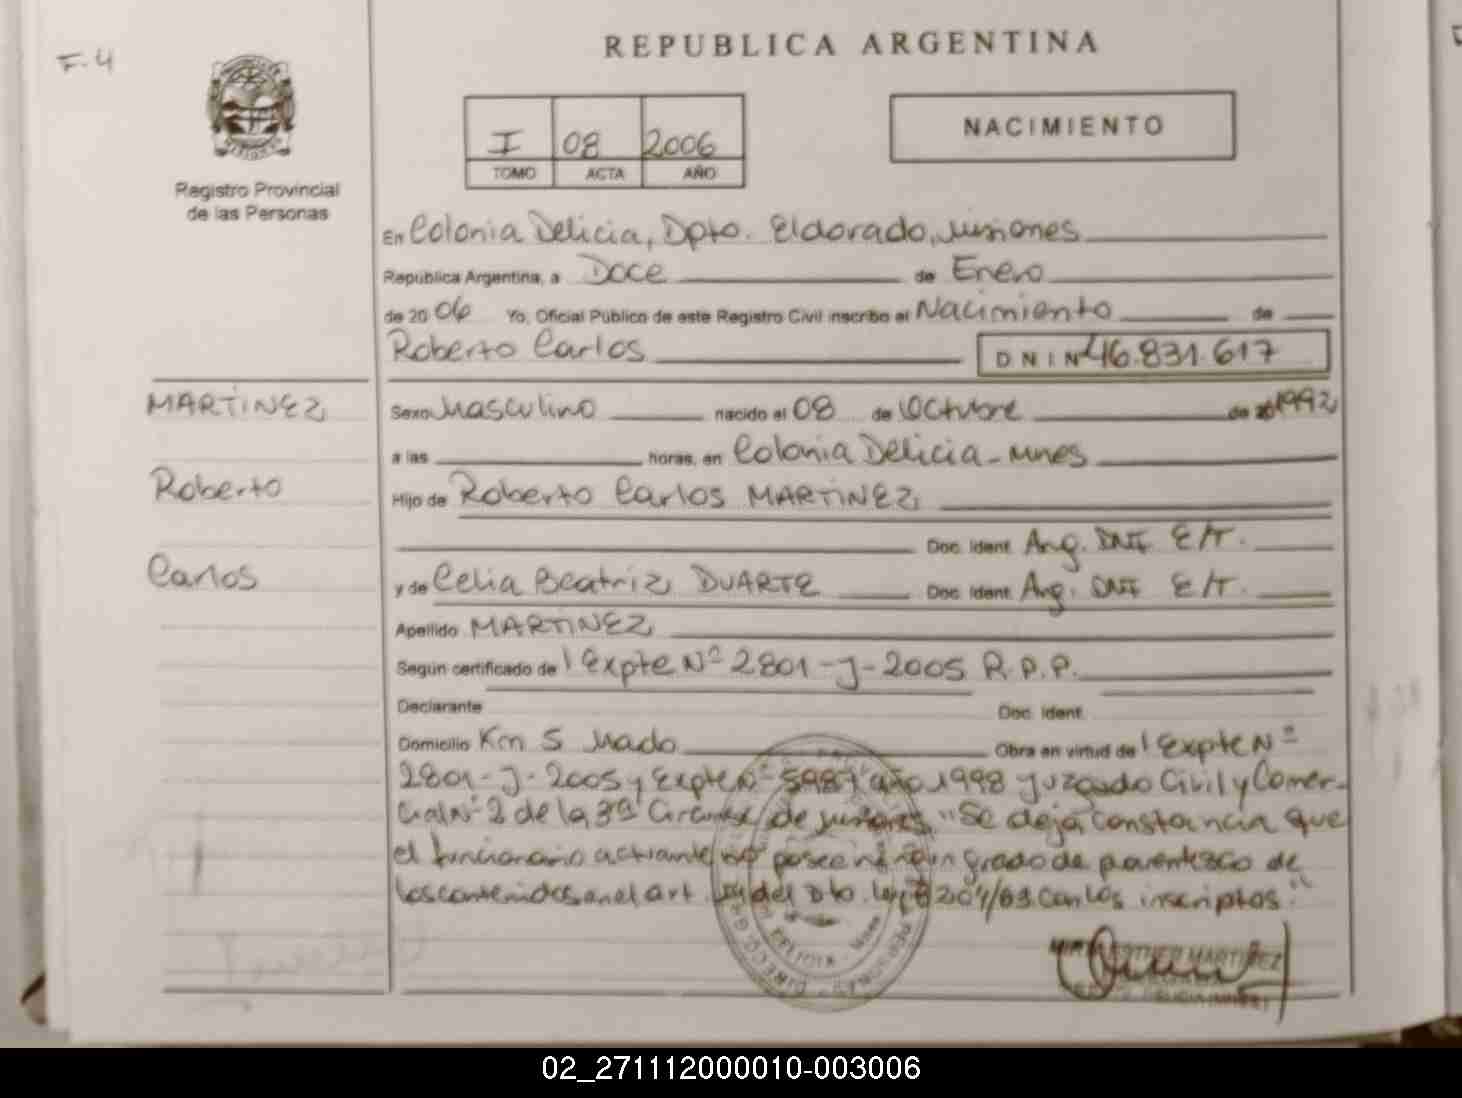 F-4
REPUBLICA ARGENTINA
I 08 2006
TOMO ACTA AÑO
NACIMIENTO
Registro Provincial
de las Personas
En Colonia Delicia, Dpto. Eldorado, Misiones
República Argentina, a Doce de Enero
de 2006 Yo, Oficial Público de este Registro Civil inscribo el Nacimiento de
Roberto Carlos DNI Nº 46.831.617
MARTINEZ
Roberto
Carlos
Sexo Masculino nacido el 08 de Octubre de 20 1992
a las horas, en Colonia Delicia - Mnes
Hijo de Roberto Carlos MARTINEZ
Doc. Ident. Arg. DNI E/T.
y de Celia Beatriz DUARTE Doc. Ident. Arg. DNI E/T.
Apellido MARTINEZ
Según certificado de Expte Nº 2801-J-2005 R.P.P.
Declarante Doc. Ident.
Domicilio Km 5 Mado Obra en virtud de Expte Nº
2801-J-2005 y Expte Nº 5987 año 1998 Juzgado Civil y Comer-
cial Nº 2 de la 3ª Circunsc. de Misiones "Se deja constancia que
el funcionario actuante no posee ningún grado de parentesco de
los contenidos en el art. del Dto. Ley 8204/63 con los inscriptos."
DELICIA
ESTHER MARTINEZ
DELICIA (MNES)
02_271112000010-003006